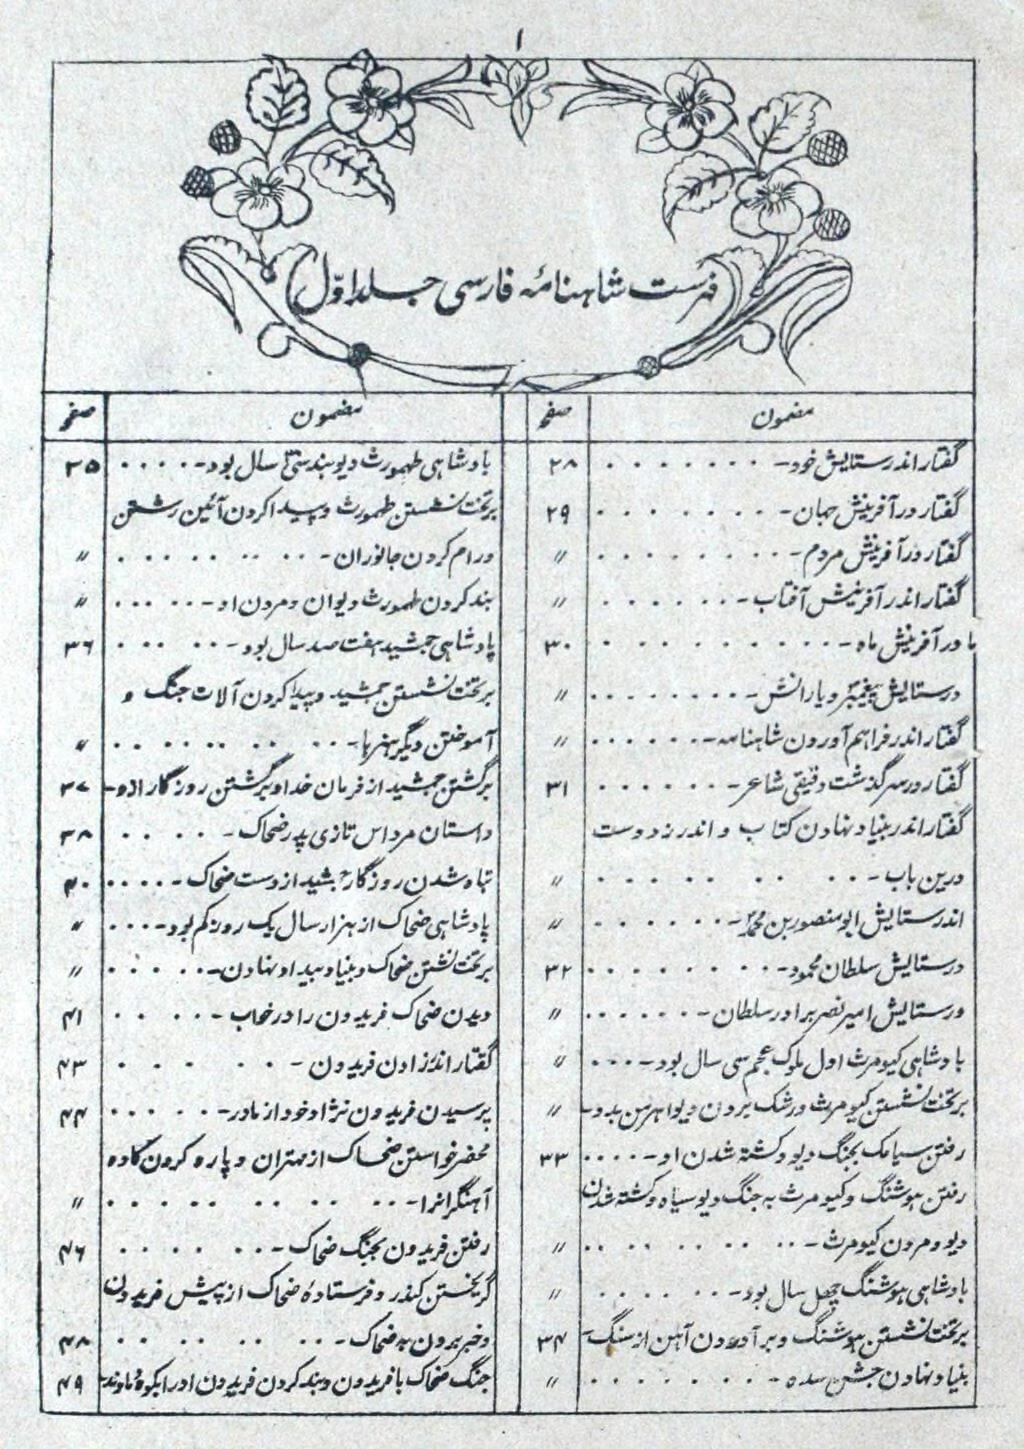 ۱
فہرست شاہنامۂ فارسی جلد اوّل
مضمون صفحہ
گفتار اندر ستایش خود ۲۸
گفتار در آفرینش جہان ۲۹
گفتار در آفرینش مردم 〃
گفتار اندر آفرینش آفتاب 〃
در آفرینش ماہ ۳۰
در ستایش پیغمبر و یارانش 〃
گفتار اندر فراہم آوردن شاہنامہ 〃
گفتار در سرگذشت دقیقی شاعر ۳۱
گفتار اندر بنیاد نہادن کتاب و اندرز دوست
درین باب 〃
اندر ستایش ابو منصور بن محمد 〃
در ستایش سلطان محمود ۳۲
در ستایش امیر نصر برادر سلطان 〃
پادشاہی کیومرث اول ملوک عجم سی سال بود 〃
بر تخت نشستن کیومرث و رشک بردن دیو اہرمن بدو 〃
رفتن سیامک بجنگ دیو و کشتہ شدن او ۳۳
رفتن ہوشنگ و کیومرث بہ جنگ دیو سیاہ و کشتہ شدن
دیو و مردن کیومرث 〃
پادشاہی ہوشنگ چہل سال بود 〃
بر تخت نشستن ہوشنگ و بر آوردن آہن از سنگ ۳۴
بنیاد نہادن جشن سدہ 〃
مضمون صفحہ
پادشاہی طہمورث دیوبند سی سال بود ۳۵
بر تخت نشستن طہمورث و پیدا کردن آئین رشتن
و رام کردن جانوران 〃
بند کردن طہمورث دیوان و مردن او 〃
پادشاہی جمشید ہفت صد سال بود ۳۶
بر تخت نشستن جمشید و پیدا کردن آلات جنگ و
آموختن دیگر ہنرہا 〃
برگشتن جمشید از فرمان خدا و برگشتن روزگار ازو ۳۷
داستان مرداس تازی پدر ضحاک ۳۸
تباہ شدن روزگار جمشید از دست ضحاک ۴۰
پادشاہی ضحاک از ہزار سال یک روز کم بود 〃
بر تخت نشستن ضحاک و بنیاد بیداد نہادن 〃
دیدن ضحاک فریدون را در خواب ۴۱
گفتار اندر زادن فریدون ۴۳
پرسیدن فریدون نژاد خود از مادر ۴۴
محضر خواستن ضحاک از مہتران و پارہ کردن کاوہ
آہنگر آنرا 〃
رفتن فریدون بجنگ ضحاک ۴۶
گریختن کندرو فرستادۂ ضحاک از پیش فریدون
و خبر بردن بہ ضحاک ۴۸
جنگ ضحاک با فریدون و بند کردن فریدون او را بکوہ دماوند ۴۹